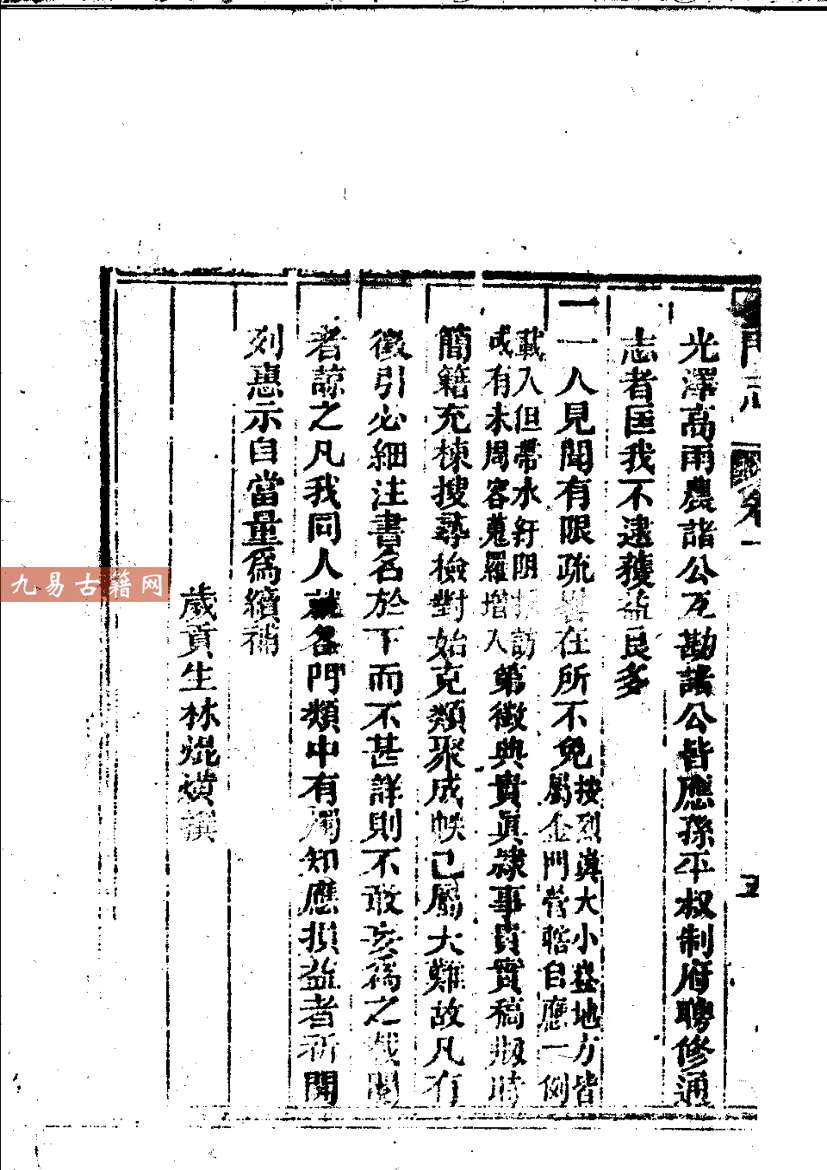 光澤高雨農諸公互勘諸公皆應孫平叔制府聘修通
志者匡我不逮獲益良多
一一人見聞有限疏畧在所不免按烈嶼大小嶝地方皆
屬金門營轄自應一例
載入但帶水紆阻採訪
或有未周容蒐羅增入第徵典貴眞隸事貴實稿將
簡籍充棟搜尋檢對始克類聚成帙已屬大難故凡有
徵引必細注書名於下而不甚詳則不敢妄爲之載閱
者諒之凡我同人就各門類中有獨知應損益者祈開
列惠示自當量爲續補
歲貢生林焜熿撰
門志
卷一
五
九易古籍网